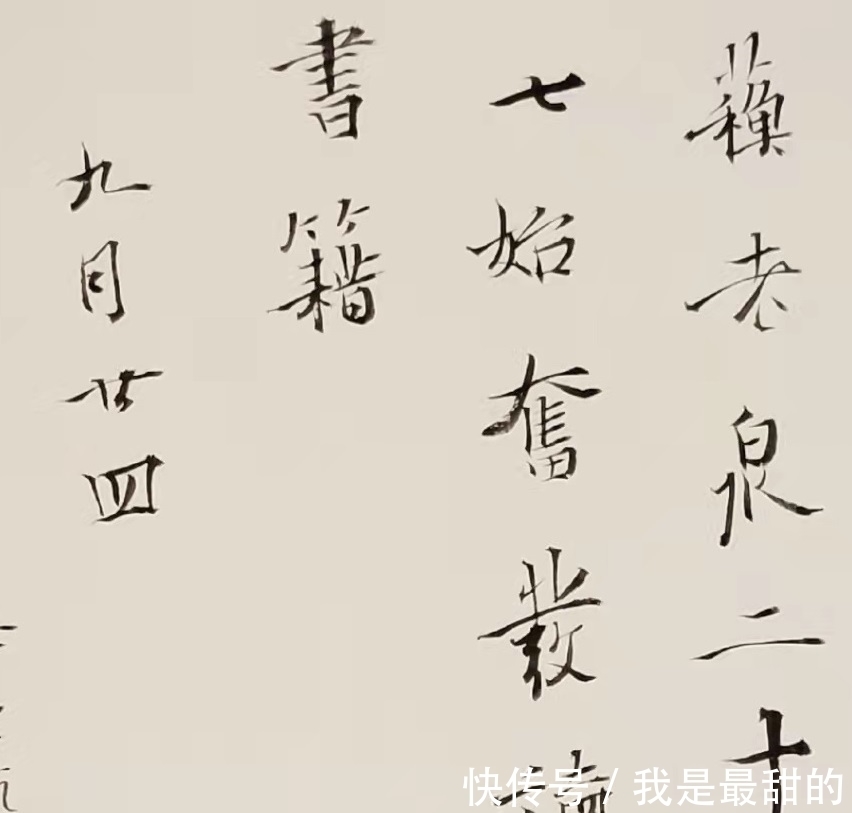 蘓老泉二十
七始奮發讀
書籍
九月廿四
快传号/我是最甜的